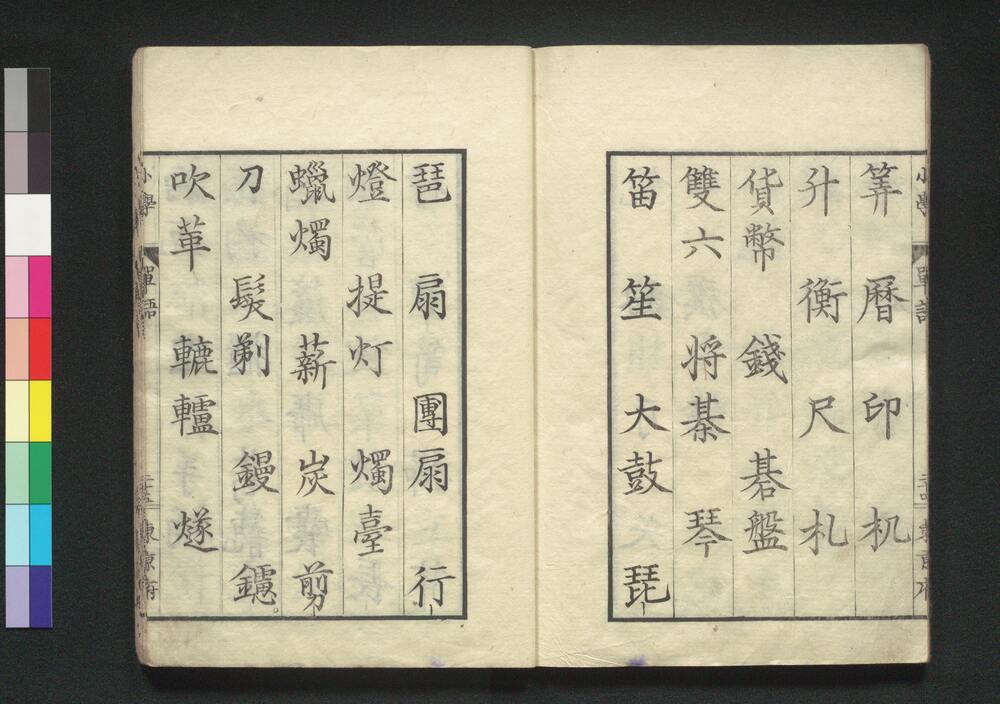 筭 暦 印 机
升 衡 尺 札
貨幣 錢 碁盤
雙六 将棊 琴
笛 笙 大鼓 琵
琶 扇 團扇 行
燈 提灯 燭臺
蠟燭 薪 炭 剪
刀 髮剃 鏝 鑢
吹革 轆轤 燧
小學 單語
東京府